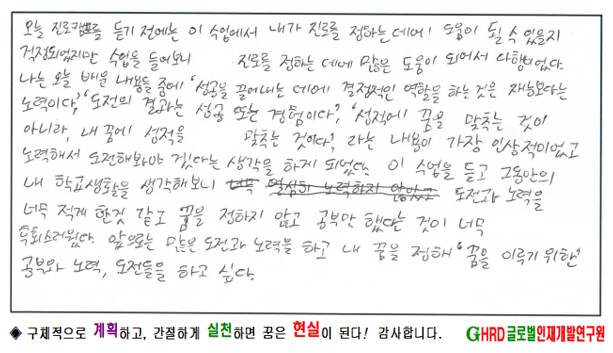 오늘 진로캠프를 듣기 전에는 이 수업에서 내가 진로를 정하는데에 도움이 될 수 있을지
걱정되었지만 수업을 들어보니 진로를 정하는 데에 많은 도움이 되어서 다행이었다.
나는 오늘 배운 내용들 중에 '성공을 끌어내는 데에 결정적인 역할을 하는것은 재능보다는
노력이다,' '도전의 결과는 성공 또는 경험이다', '성적에 꿈을 맞추는 것이
아니라, 내 꿈에 성적을 맞추는 것이다', 라는 내용이 가장 인상적이었고
노력해서 도전해봐야 겠다는 생각을 하게 되었다. 이 수업을 듣고 그동안의
내 학교생활을 생각해보니 너무 열심히 노력하지 않았고 도전과 노력을
너무 적게 한것 같고 꿈을 정하지 않고 공부만 했다는 것이 너무
후회스러웠다. 앞으로는 많은 도전과 노력을 하고 내 꿈을 정해 '꿈을 이루기 위한'
공부와 노력, 도전들을 하고 싶다.
◈ 구체적으로 계획하고, 간절하게 실천하면 꿈은 현실이 된다! 감사합니다. GHRD글로벌인재개발연구원